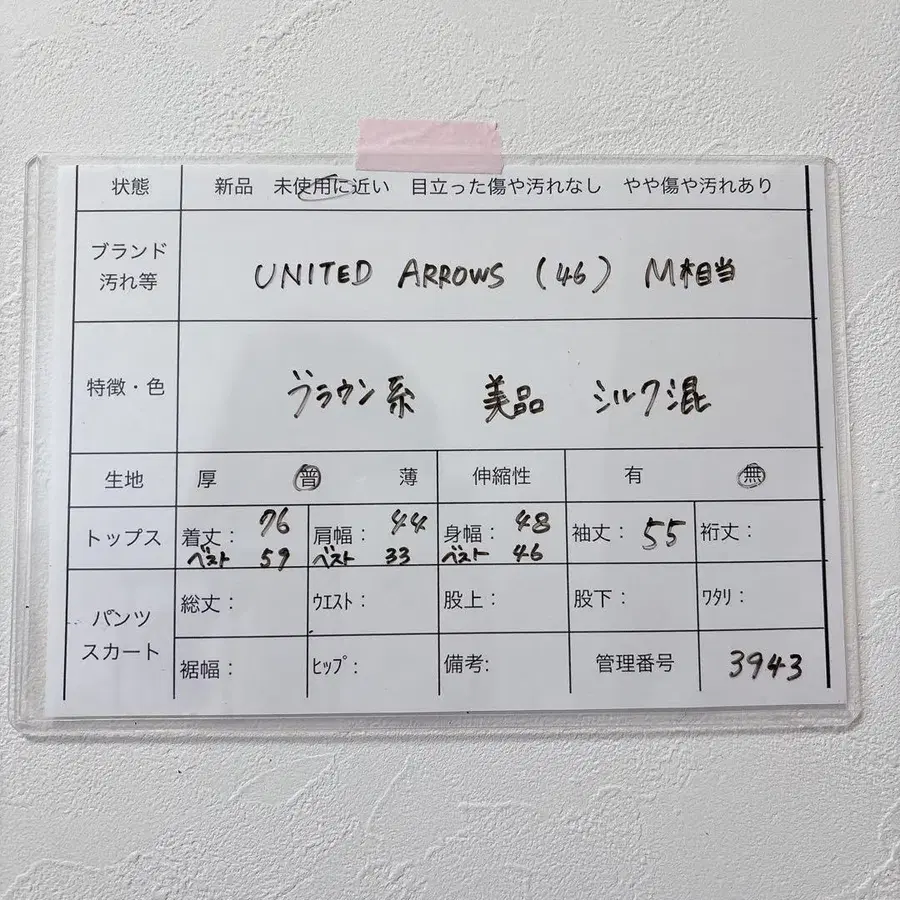 状態 新品 未使用に近い 目立った傷や汚れなし やや傷や汚れあり
ブランド
汚れ等
UNITED ARROWS (46) M相当
特徴・色 ブラウン系 美品 シルク混
生地 厚 普 薄 伸縮性 有 無
トップス 着丈: 76 肩幅: 44 身幅: 48 袖丈: 55 裄丈:
ベスト 59 ベスト 33 ベスト 46
パンツ
スカート
総丈: ウエスト: 股上: 股下: ワタリ:
裾幅: ヒップ: 備考: 管理番号 3943